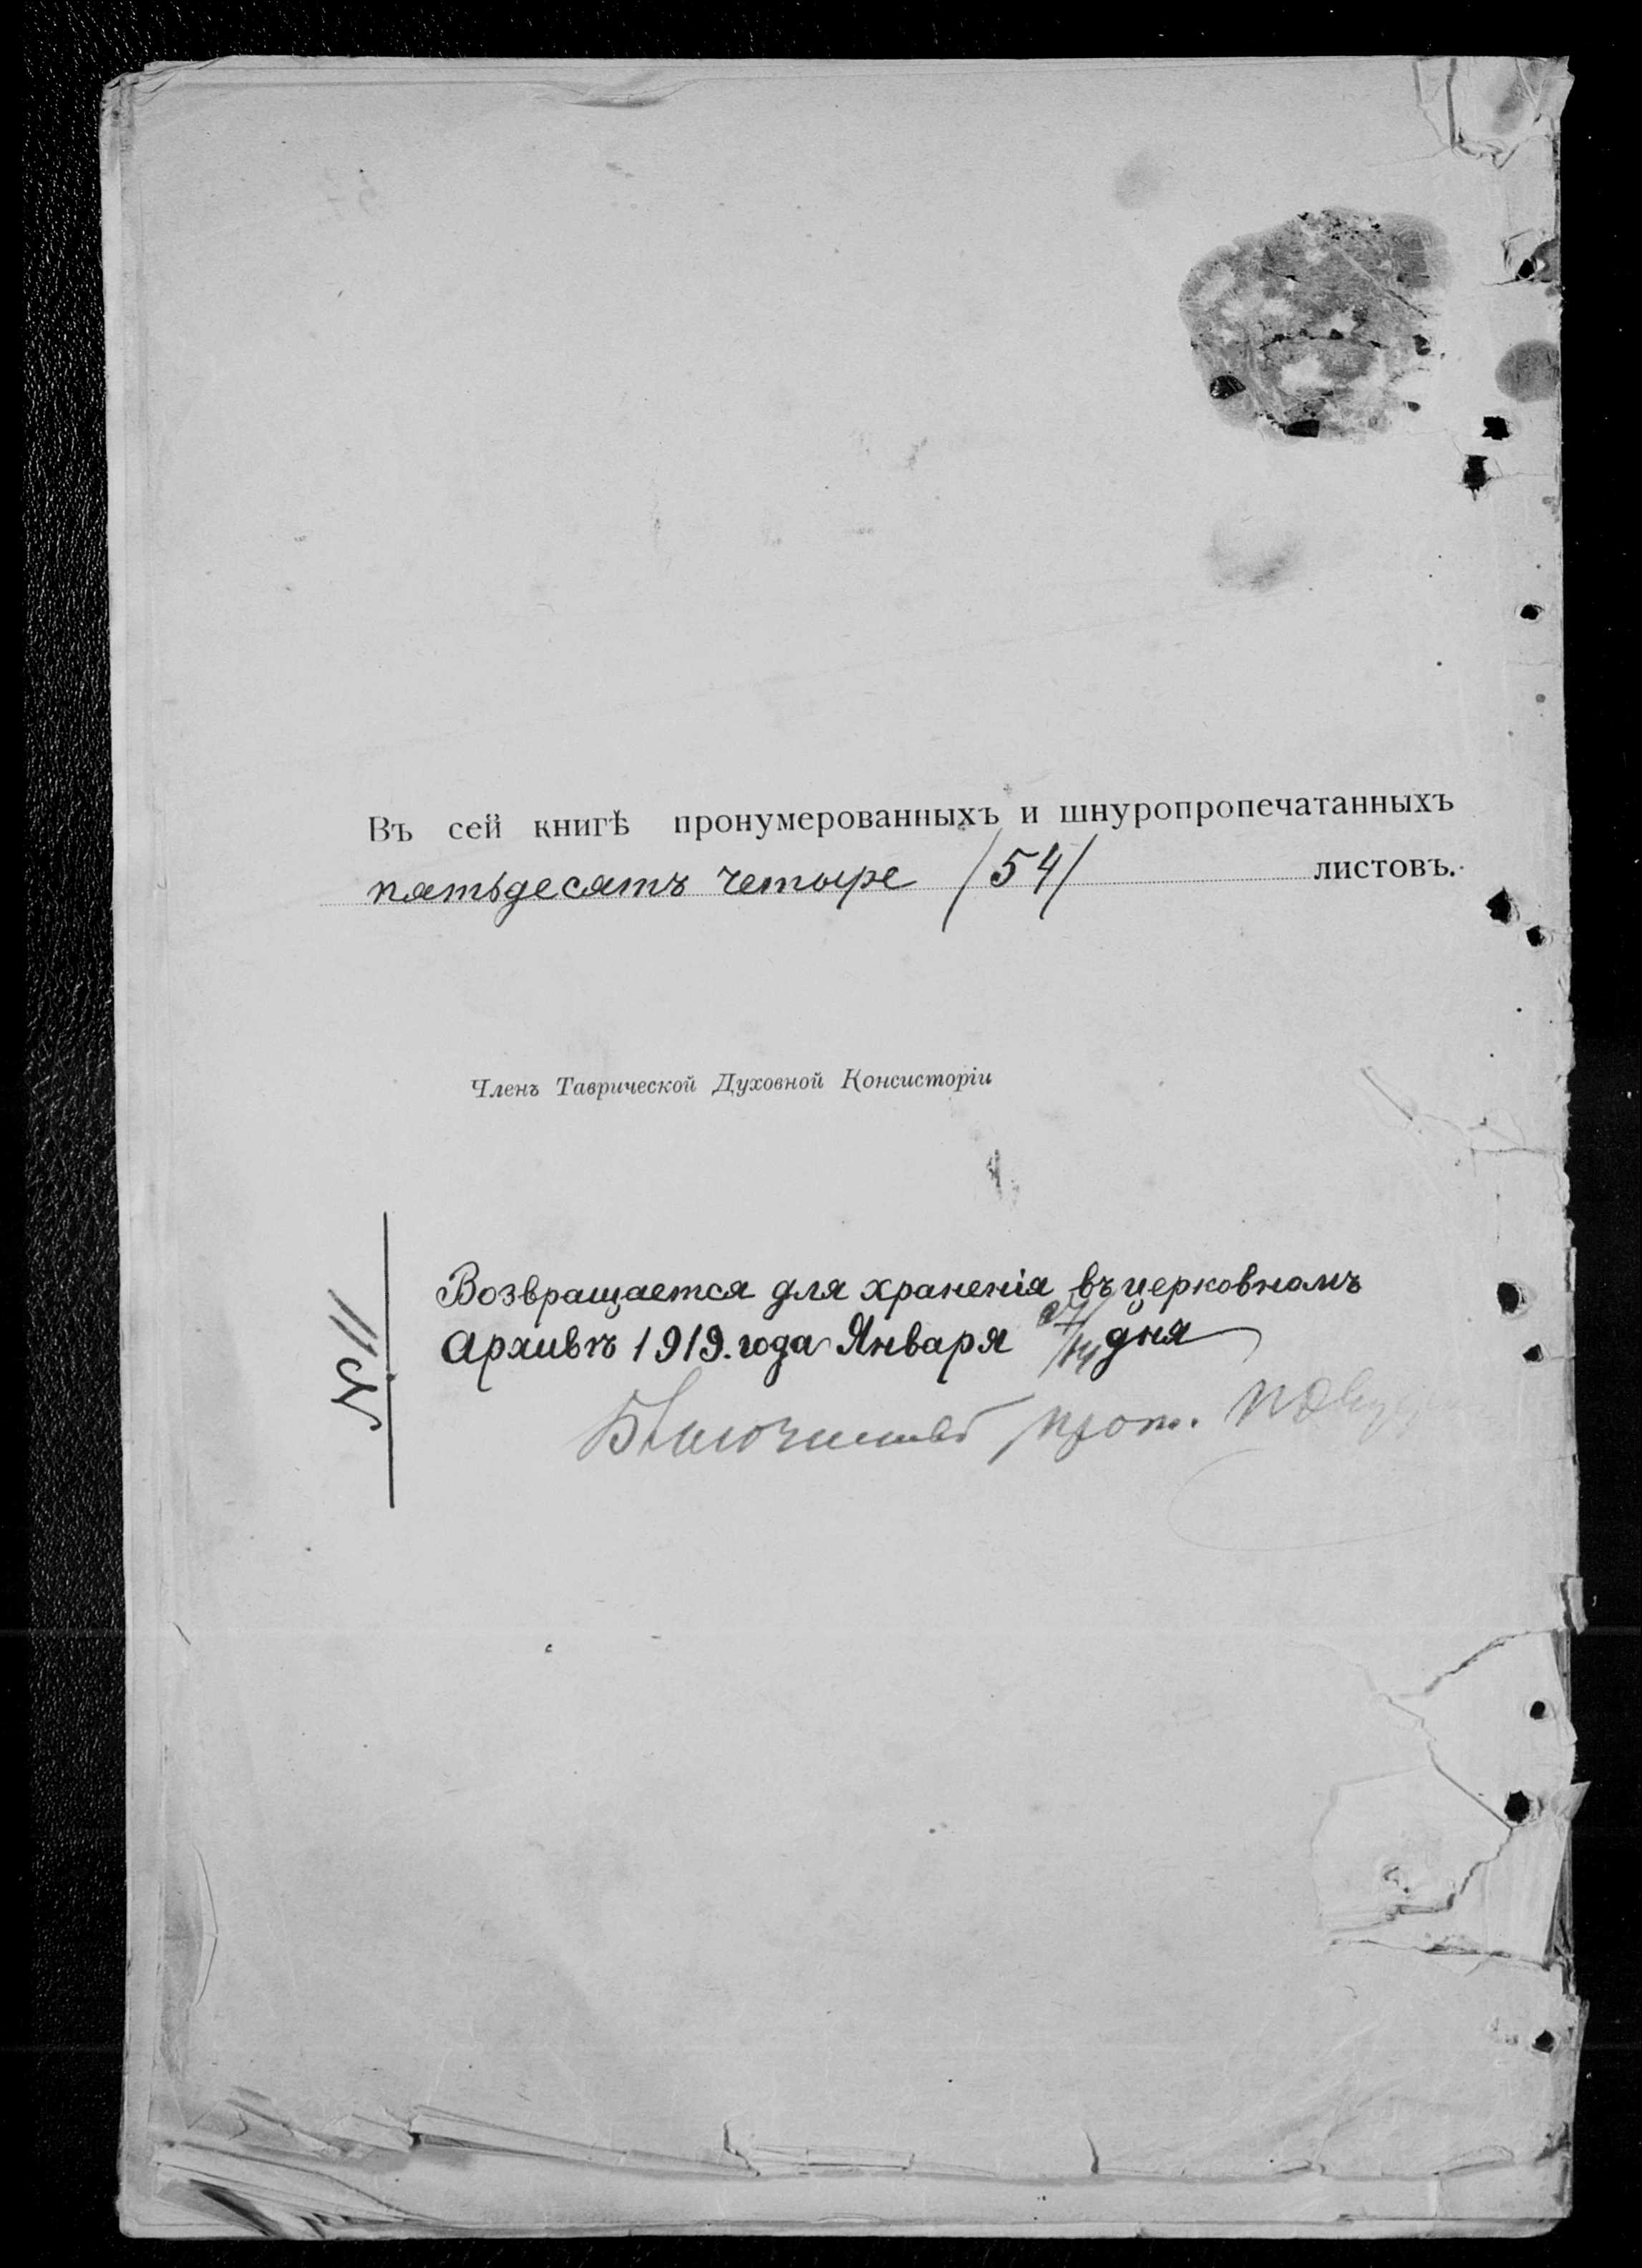 Въ сей книгѣ пронумерованныхъ и шнуропропечатанныхъ
пятьдесятъ четыре /54/ листовъ.
Членъ Таврической Духовной Консисторіи
№11
Возвращается для храненія въ церковномъ
Архивѣ 1919. года Января 27/14 дня
прот.